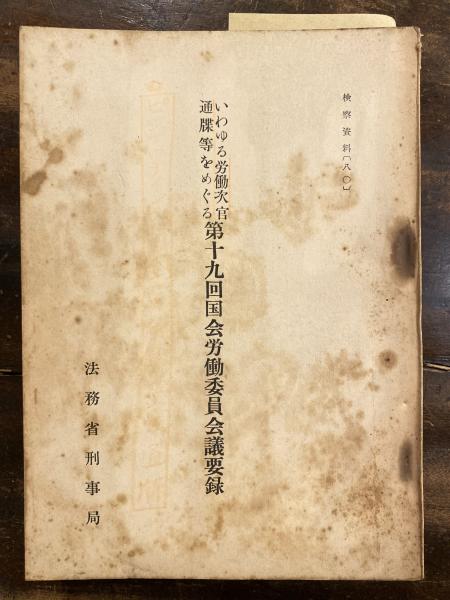 検察資料〔八〇〕
いわゆる労働次官
通牒等をめぐる
第十九回国会労働委員会議要録
法務省刑事局